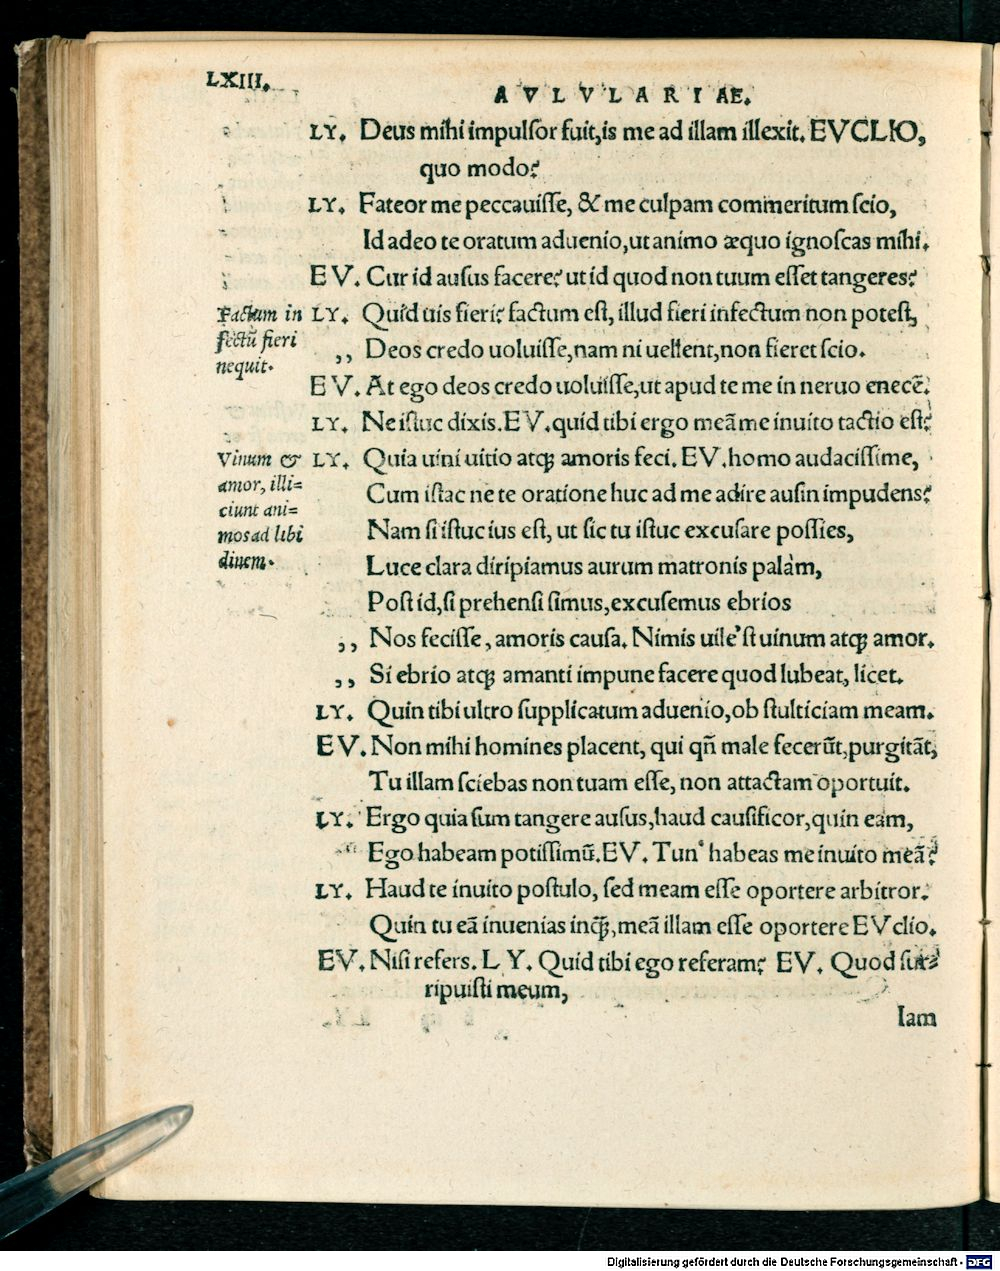 LXIII.
AVLVLARIAE.
LY. Deus mihi impulſor fuit,is me ad illam illexit. EVCLIO,
quo modo?
LY. Fateor me peccauiſſe, & me culpam commeritum ſcio,
Id adeo te oratum aduenio,ut animo æquo ignoſcas mihi.
EV. Cur id auſus facere? ut id quod non tuum eſſet tangeres?
LY. Quid uis fieri? factum eſt, illud fieri infectum non poteſt,
,, Deos credo uoluiſſe,nam ni uellent,non fieret ſcio.
Factum in
fectū fieri
nequit.
EV. At ego deos credo uoluiſſe,ut apud te me in neruo enecē.
LY. Ne iſtuc dixis.EV.quid tibi ergo meā me inuito tactio eſt?
LY. Quia uini uitio atqꝫ amoris feci. EV.homo audaciſſime,
Cum iſtac ne te oratione huc ad me adire auſin impudens?
Nam ſi iſtuc ius eſt, ut ſic tu iſtuc excuſare poſſies,
Luce clara diripiamus aurum matronis palàm,
Vinum &
amor, illi=
ciunt ani=
mos ad libi
dinem.
Poſt id,ſi prehenſi ſimus,excuſemus ebrios
,, Nos feciſſe, amoris cauſa. Nimis uile'ſt uinum atqꝫ amor.
,, Si ebrio atqꝫ amanti impune facere quod lubeat, licet.
LY. Quin tibi ultro ſupplicatum aduenio,ob ſtulticiam meam.
EV. Non mihi homines placent, qui qn̄ male fecerūt,purgitāt,
Tu illam ſciebas non tuam eſſe, non attactam oportuit.
LY. Ergo quia ſum tangere auſus,haud cauſificor,quin eam,
Ego habeam potiſſimū.EV. Tun' habeas me inuito meā?
LY. Haud te inuito poſtulo, ſed meam eſſe oportere arbitror.
Quin tu eā inuenias inqꝫ,meā illam eſſe oportere EVclio.
EV. Niſi refers. LY. Quid tibi ego referam? EV. Quod ſur-
ripuiſti meum,
Iam
Digitalisierung gefördert durch die Deutsche Forschungsgemeinschaft - DFG